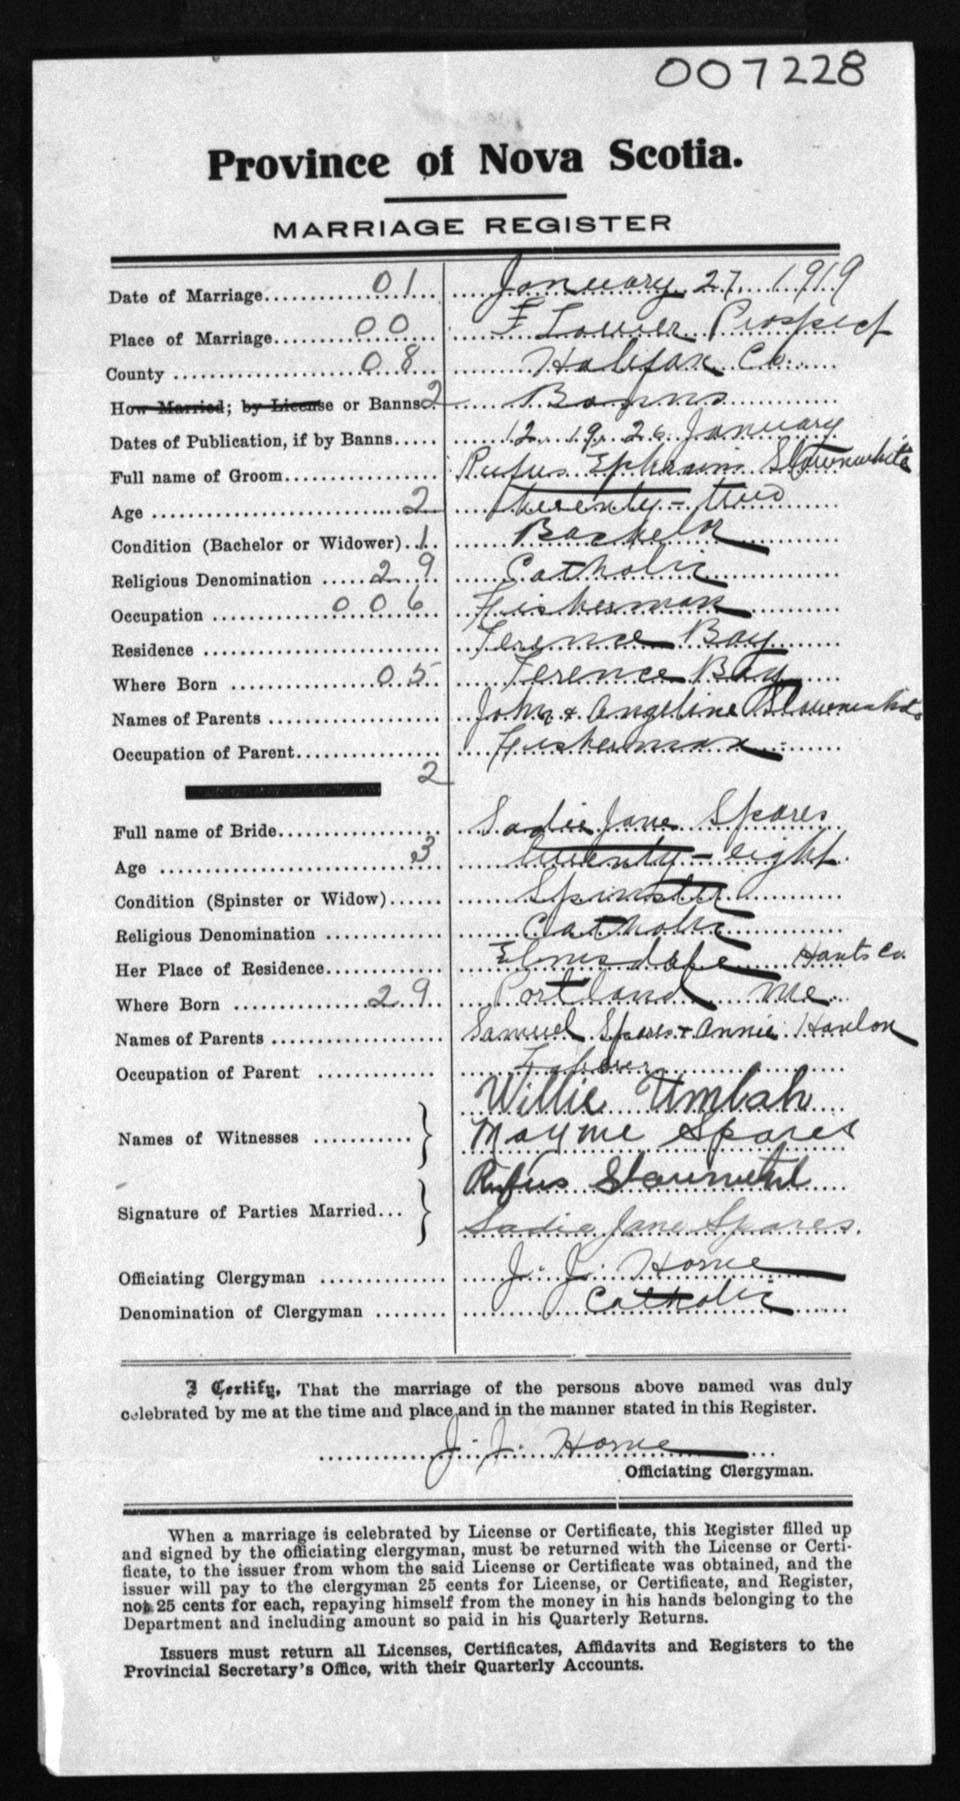 007228
Province of Nova Scotia.
MARRIAGE REGISTER
Date of Marriage 01 January 27 1919
Place of Marriage 00 Lower Prospect
County 08 Halifax Co.
How Married; by License or Banns 2 Banns
Dates of Publication, if by Banns 12. 19. 26 January
Full name of Groom Rufus Ephraim Slawnwhite
Age 2 twenty-two
Condition (Bachelor or Widower) 1 Bachelor
Religious Denomination 29 Catholic
Occupation 006 Fisherman
Residence Terence Bay
Where Born 05 Terence Bay
Names of Parents John & Angeline
Occupation of Parent Fisherman
2
Full name of Bride Sadie Jane Spares
Age 3 twenty-eight
Condition (Spinster or Widow) Spinster
Religious Denomination Catholic
Her Place of Residence Elmsdale Hants Co.
Where Born 29 Portland Me.
Names of Parents Samuel Spares & Annie Hanlon
Occupation of Parent
Names of Witnesses } Willie Umlah
Mayme Spares
Signature of Parties Married... } Rufus
Sadie Jane Spares.
Officiating Clergyman J. J. Horne
Denomination of Clergyman Catholic
I Certify, That the marriage of the persons above named was duly
celebrated by me at the time and place and in the manner stated in this Register.
J. J. Horne
Officiating Clergyman.
When a marriage is celebrated by License or Certificate, this Register filled up
and signed by the officiating clergyman, must be returned with the License or Certi-
ficate, to the issuer from whom the said License or Certificate was obtained, and the
issuer will pay to the clergyman 25 cents for License, or Certificate, and Register,
not 25 cents for each, repaying himself from the money in his hands belonging to the
Department and including amount so paid in his Quarterly Returns.
Issuers must return all Licenses, Certificates, Affidavits and Registers to the
Provincial Secretary's Office, with their Quarterly Accounts.